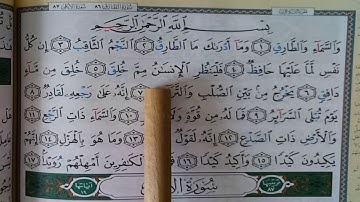 بِسْمِ ٱللَّهِ ٱلرَّحْمَٰنِ ٱلرَّحِيمِ
وَٱلسَّمَآءِ وَٱلطَّارِقِ ١ وَمَآ أَدْرَىٰكَ مَا ٱلطَّارِقُ ٢ ٱلنَّجْمُ ٱلثَّاقِبُ ٣ إِن كُلُّ
نَفْسٍ لَّمَّا عَلَيْهَا حَافِظٌ ٤ فَلْيَنظُرِ ٱلْإِنسَٰنُ مِمَّ خُلِقَ ٥ خُلِقَ مِن مَّآءٍ
دَافِقٍ ٦ يَخْرُجُ مِنۢ بَيْنِ ٱلصُّلْبِ ٧ إِنَّهُۥ عَلَىٰ رَجْعِهِۦ لَقَادِرٌ ٨
يَوْمَ تُبْلَى ٱلسَّرَآئِرُ ٩ فَمَا لَهُۥ مِن قُوَّةٍ وَلَا ١٠ وَٱلسَّمَآءِ ذَاتِ ٱلرَّجْعِ ١١
وَٱلْأَرْضِ ذَاتِ ٱلصَّدْعِ ١٢ إِنَّهُۥ لَقَوْلٌ ١٣ وَمَا هُوَ بِٱلْهَزْلِ ١٤ إِنَّهُمْ
يَكِيدُونَ كَيْدًا ١٥ وَأَكِيدُ كَيْدًا ١٦ ٱلْكَٰفِرِينَ أَمْهِلْهُمْ رُوَيْدًۢا ١٧
سُورَةُ